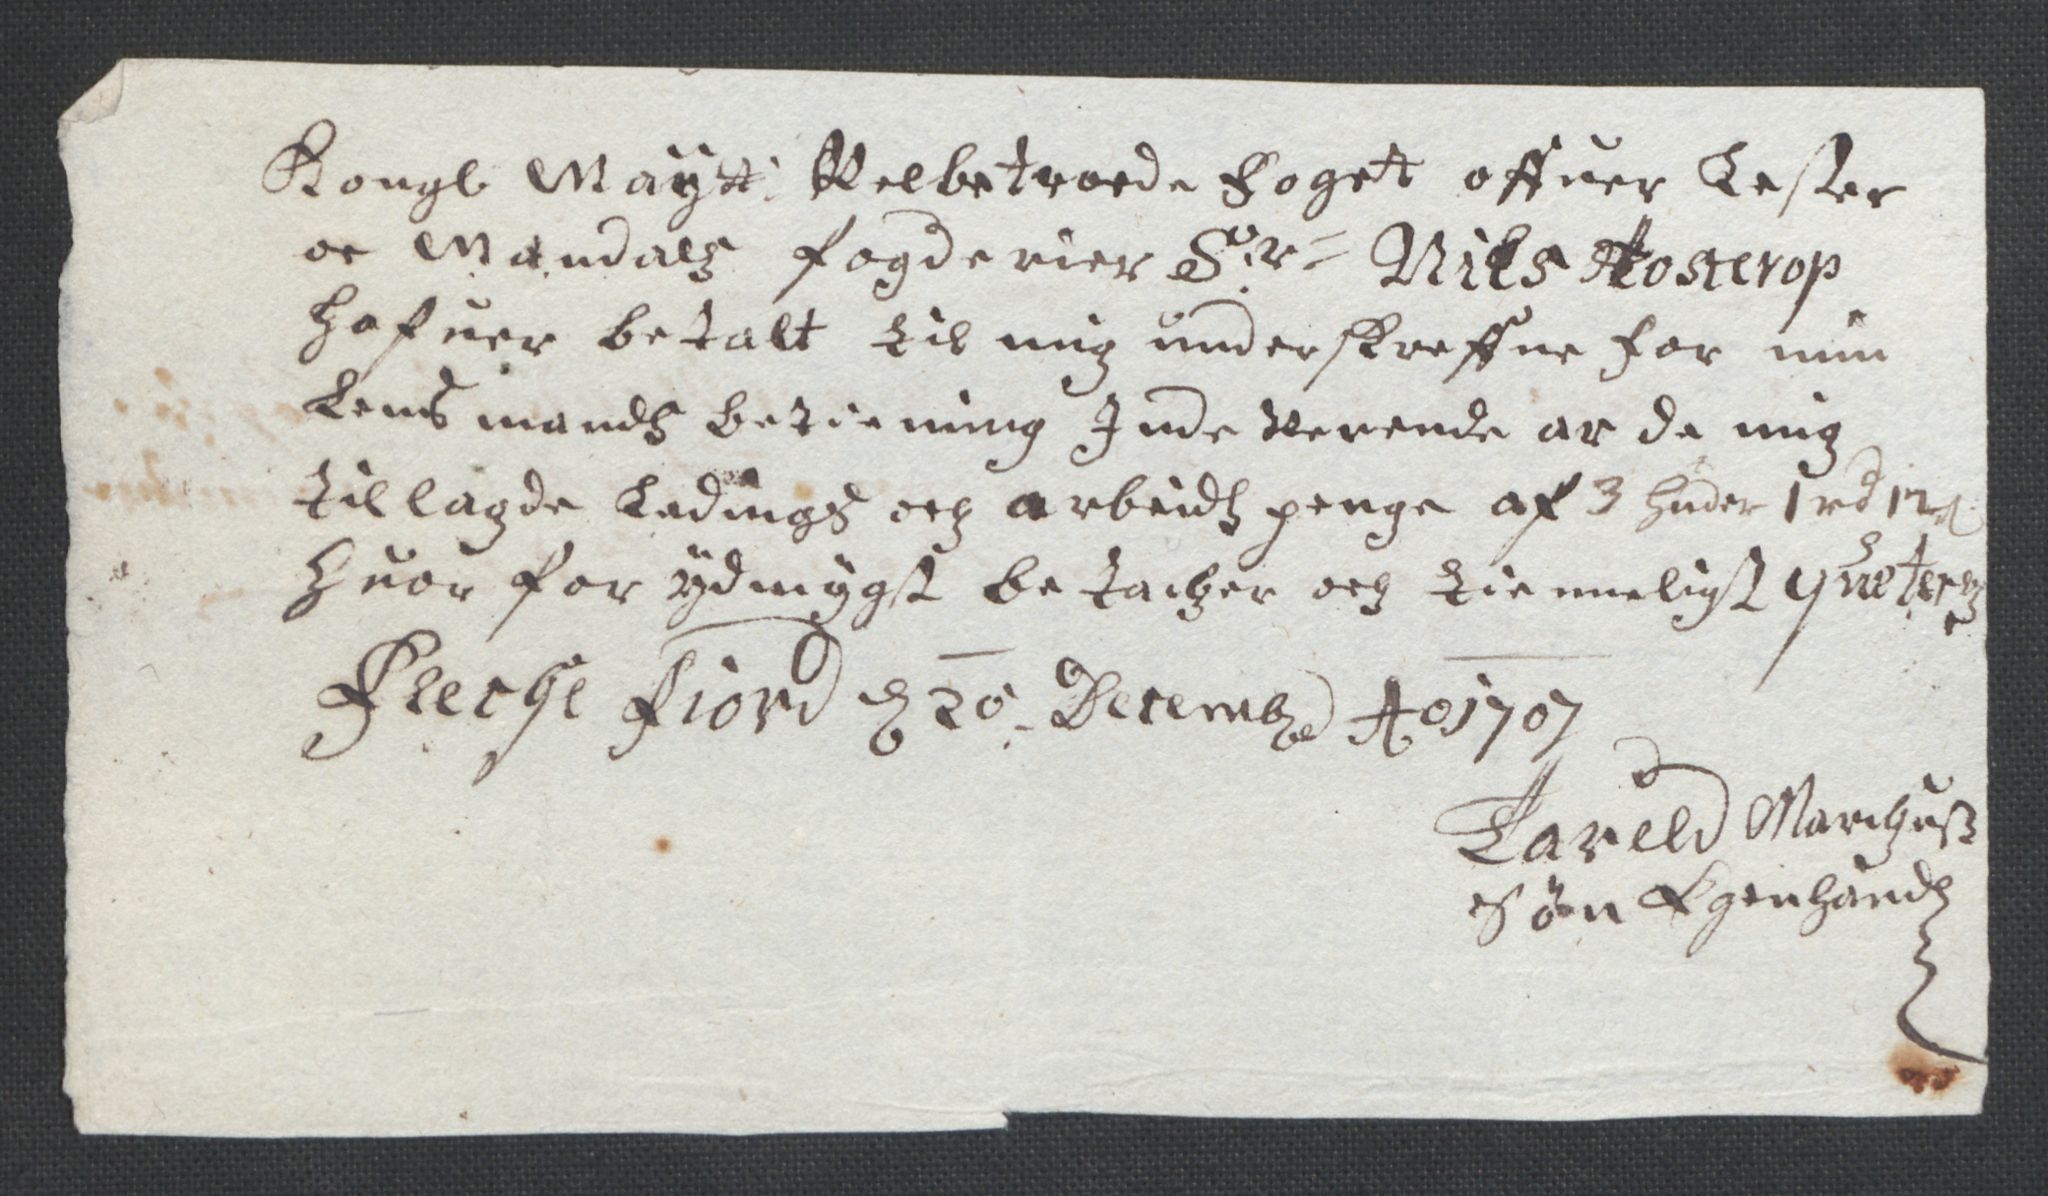 Kongl Maytt: Velbetroede Foget offuer Lester
oc Mandals fogderier Sr= Nils Kosterop
hafuer betalt til mig underskreffne for min
Lensmands betiening Inde verende ar de mig
tillagde Ledings och arbeids penge af 3 huder 1 rd 12 s
huor for ydmygst betacher och tienneligst queterer
Flechefiord d 20 Decembr Ao 1707
Tareld Marchuss
Søn Egenhand